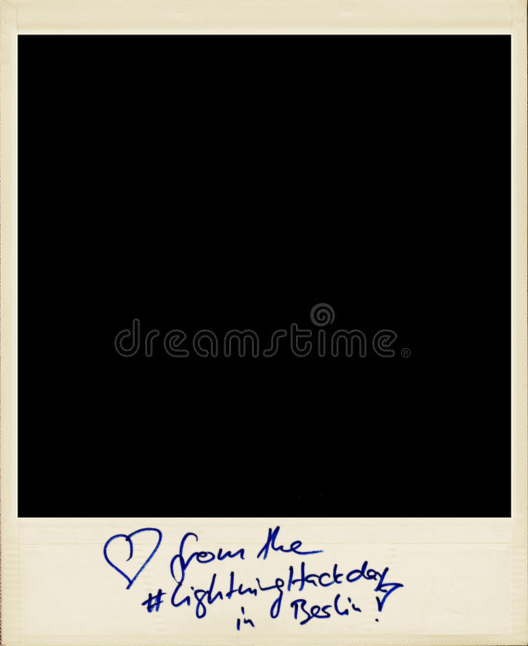 dreamstime®
♡ from the
#LightningHackday
in Berlin!